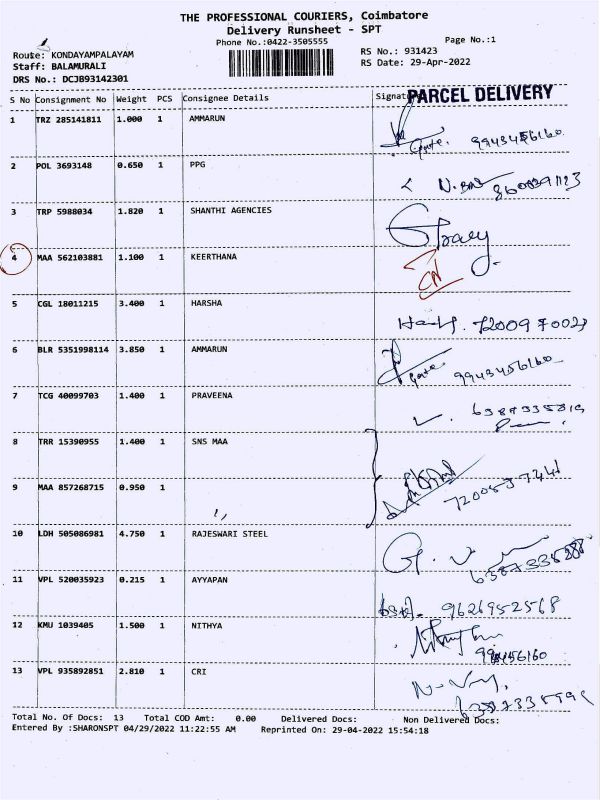 THE PROFESSIONAL COURIERS, Coimbatore
Delivery Runsheet - SPT
Phone No.:0422-3505555 Page No.:1
Route: KONDAYAMPALAYAM RS No.: 931423
Staff: BALAMURALI RS Date: 29-Apr-2022
DRS No.: DCJB93142301
S No Consignment No Weight PCS Consignee Details Signature PARCEL DELIVERY
1 TRZ 285141811 1.000 1 AMMARUN
Gate. 9943456160
2 POL 3693148 0.650 1 PPG
3 TRP 5988034 1.820 1 SHANTHI AGENCIES
4 MAA 562103881 1.100 1 KEERTHANA
5 CGL 18011215 3.400 1 HARSHA
6 BLR 5351998114 3.850 1 AMMARUN
Gate 9943456160
7 TCG 40099703 1.400 1 PRAVEENA
8 TRR 15390955 1.400 1 SNS MAA
9 MAA 857268715 0.950 1 ,,
10 LDH 505086981 4.750 1 RAJESWARI STEEL
11 VPL 520035923 0.215 1 AYYAPAN
9626952568
12 KMU 1039405 1.500 1 NITHYA
13 VPL 935892851 2.810 1 CRI
Total No. Of Docs: 13 Total COD Amt: 0.00 Delivered Docs: Non Delivered Docs:
Entered By :SHARONSPT 04/29/2022 11:22:55 AM Reprinted On: 29-04-2022 15:54:18